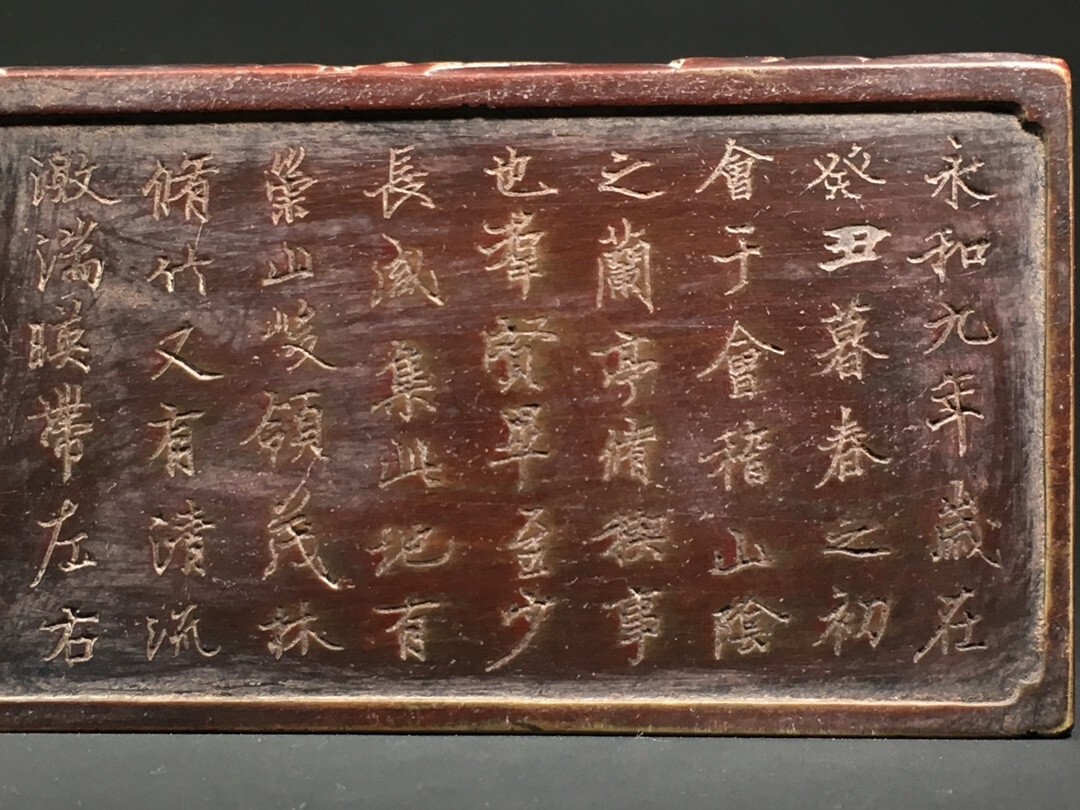 永和九年歲在
癸丑暮春之初
會于會稽山陰
之蘭亭脩禊事
也羣賢畢至少
長咸集此地有
崇山峻領茂林
脩竹又有清流
激湍暎帶左右